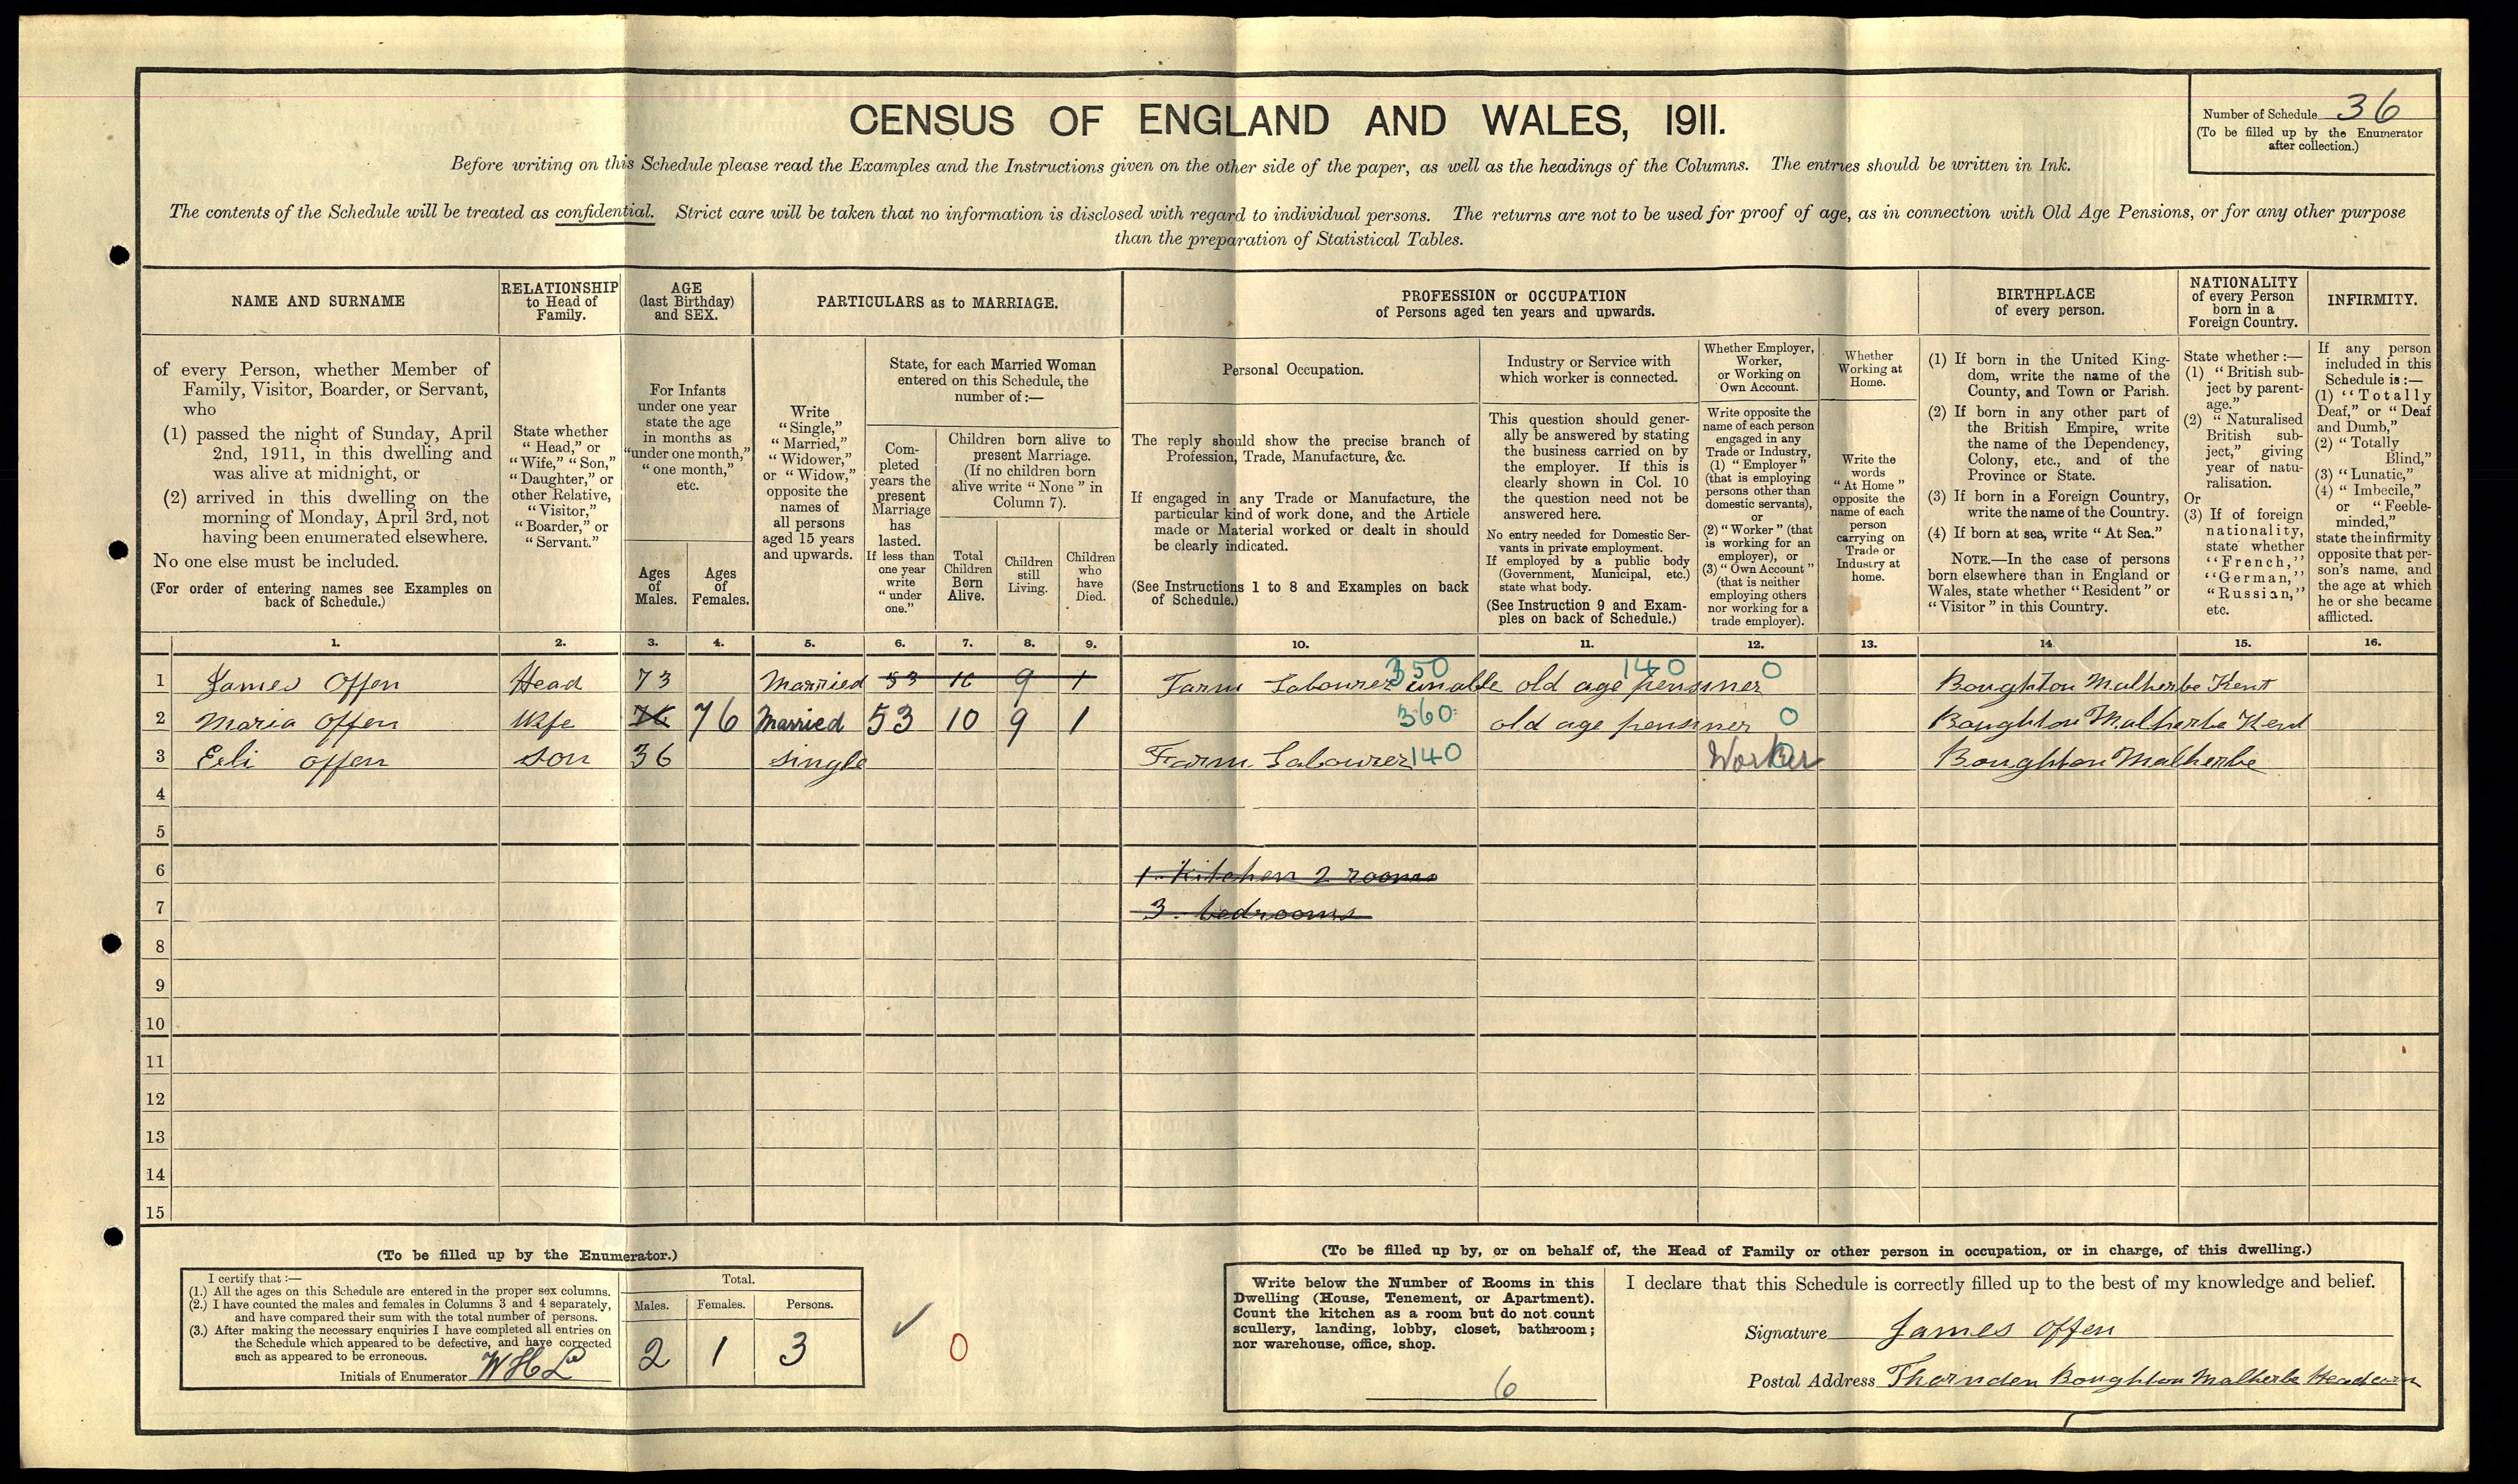 CENSUS OF ENGLAND AND WALES, 1911.
Number of Schedule 36
(To be filled up by the Enumerator
after collection.)
Before writing on this Schedule please read the Examples and the Instructions given on the other side of the paper, as well as the headings of the Columns. The entries should be written in Ink.
The contents of the Schedule will be treated as confidential. Strict care will be taken that no information is disclosed with regard to individual persons. The returns are not to be used for proof of age, as in connection with Old Age Pensions, or for any other purpose
than the preparation of Statistical Tables.
NAME AND SURNAME
of every Person, whether Member of
Family, Visitor, Boarder, or Servant,
who
(1) passed the night of Sunday, April
2nd, 1911, in this dwelling and
was alive at midnight, or
(2) arrived in this dwelling on the
morning of Monday, April 3rd, not
having been enumerated elsewhere.
No one else must be included.
(For order of entering names see Examples on
back of Schedule.)
RELATIONSHIP
to Head of
Family.
State whether
"Head," or
"Wife," "Son,"
"Daughter," or
other Relative,
"Visitor,"
"Boarder," or
"Servant."
AGE
(last Birthday)
and SEX.
For Infants
under one year
state the age
in months as
"under one month,"
"one month,"
etc.
Ages
of
Males.
Ages
of
Females.
PARTICULARS as to MARRIAGE.
Write
"Single,"
"Married,"
"Widower,"
or "Widow,"
opposite the
names of
all persons
aged 15 years
and upwards.
State, for each Married Woman
entered on this Schedule, the
number of:—
Com-
pleted
years the
present
Marriage
has
lasted.
If less than
one year
write
"under
one."
Children born alive to
present Marriage.
(If no children born
alive write "None" in
Column 7).
Total
Children
Born
Alive.
Children
still
Living.
Children
who
have
Died.
PROFESSION or OCCUPATION
of Persons aged ten years and upwards.
Personal Occupation.
The reply should show the precise branch of
Profession, Trade, Manufacture, &c.
If engaged in any Trade or Manufacture, the
particular kind of work done, and the Article
made or Material worked or dealt in should
be clearly indicated.
(See Instructions 1 to 8 and Examples on back
of Schedule.)
Industry or Service with
which worker is connected.
This question should gener-
ally be answered by stating
the business carried on by
the employer. If this is
clearly shown in Col. 10
the question need not be
answered here.
No entry needed for Domestic Ser-
vants in private employment.
If employed by a public body
(Government, Municipal, etc.)
state what body.
(See Instruction 9 and Exam-
ples on back of Schedule.)
Whether Employer,
Worker,
or Working on
Own Account.
Write opposite the
name of each person
engaged in any
Trade or Industry,
(1) "Employer"
(that is employing
persons other than
domestic servants),
or
(2) "Worker" (that
is working for an
employer), or
(3) "Own Account"
(that is neither
employing others
nor working for a
trade employer).
Whether
Working at
Home.
Write the
words
"At Home"
opposite the
name of each
person
carrying on
Trade or
Industry at
home.
BIRTHPLACE
of every person.
(1) If born in the United King-
dom, write the name of the
County, and Town or Parish.
(2) If born in any other part of
the British Empire, write
the name of the Dependency,
Colony, etc., and of the
Province or State.
(3) If born in a Foreign Country,
write the name of the Country.
(4) If born at sea, write "At Sea."
NOTE.—In the case of persons
born elsewhere than in England or
Wales, state whether "Resident" or
"Visitor" in this Country.
NATIONALITY
of every Person
born in a
Foreign Country.
State whether:—
(1) "British sub-
ject by parent-
age."
(2) "Naturalised
British sub-
ject," giving
year of natu-
ralisation.
Or
(3) If of foreign
nationality,
state whether
"French,"
"German,"
"Russian,"
etc.
INFIRMITY.
If any person
included in this
Schedule is:—
(1) "Totally
Deaf," or "Deaf
and Dumb,"
(2) "Totally
Blind,"
(3) "Lunatic,"
(4) "Imbecile,"
or "Feeble-
minded,"
state the infirmity
opposite that per-
son's name, and
the age at which
he or she became
afflicted.
1. 2. 3. 4. 5. 6. 7. 8. 9. 10. 11. 12. 13. 14 15. 16.
350 140 0
1 James Offen Head 73 Married 53 10 9 1 Farm Labourer unable old age pensiner Boughton Malherbe Kent
2 Maria Offen Wife 76 76 Married 53 10 9 1 360 old age pensiner 0 Boughton Malherbe Kent
3 Eeli Offen Son 36 single Farm Labourer 140 Worker 0 Boughton Malherbe
4
5
6 1 Kitchen 2 rooms
7 3 bedrooms
8
9
10
11
12
13
14
15
(To be filled up by the Enumerator.)
I certify that:—
(1.) All the ages on this Schedule are entered in the proper sex columns.
(2.) I have counted the males and females in Columns 3 and 4 separately,
and have compared their sum with the total number of persons.
(3.) After making the necessary enquiries I have completed all entries on
the Schedule which appeared to be defective, and have corrected
such as appeared to be erroneous.
Initials of Enumerator
Total.
Males. Females. Persons.
2 1 3
0
(To be filled up by, or on behalf of, the Head of Family or other person in occupation, or in charge, of this dwelling.)
Write below the Number of Rooms in this
Dwelling (House, Tenement, or Apartment).
Count the kitchen as a room but do not count
scullery, landing, lobby, closet, bathroom;
nor warehouse, office, shop.
6
I declare that this Schedule is correctly filled up to the best of my knowledge and belief.
Signature James Offen
Postal Address Thornden Boughton Malherbe Headcorn